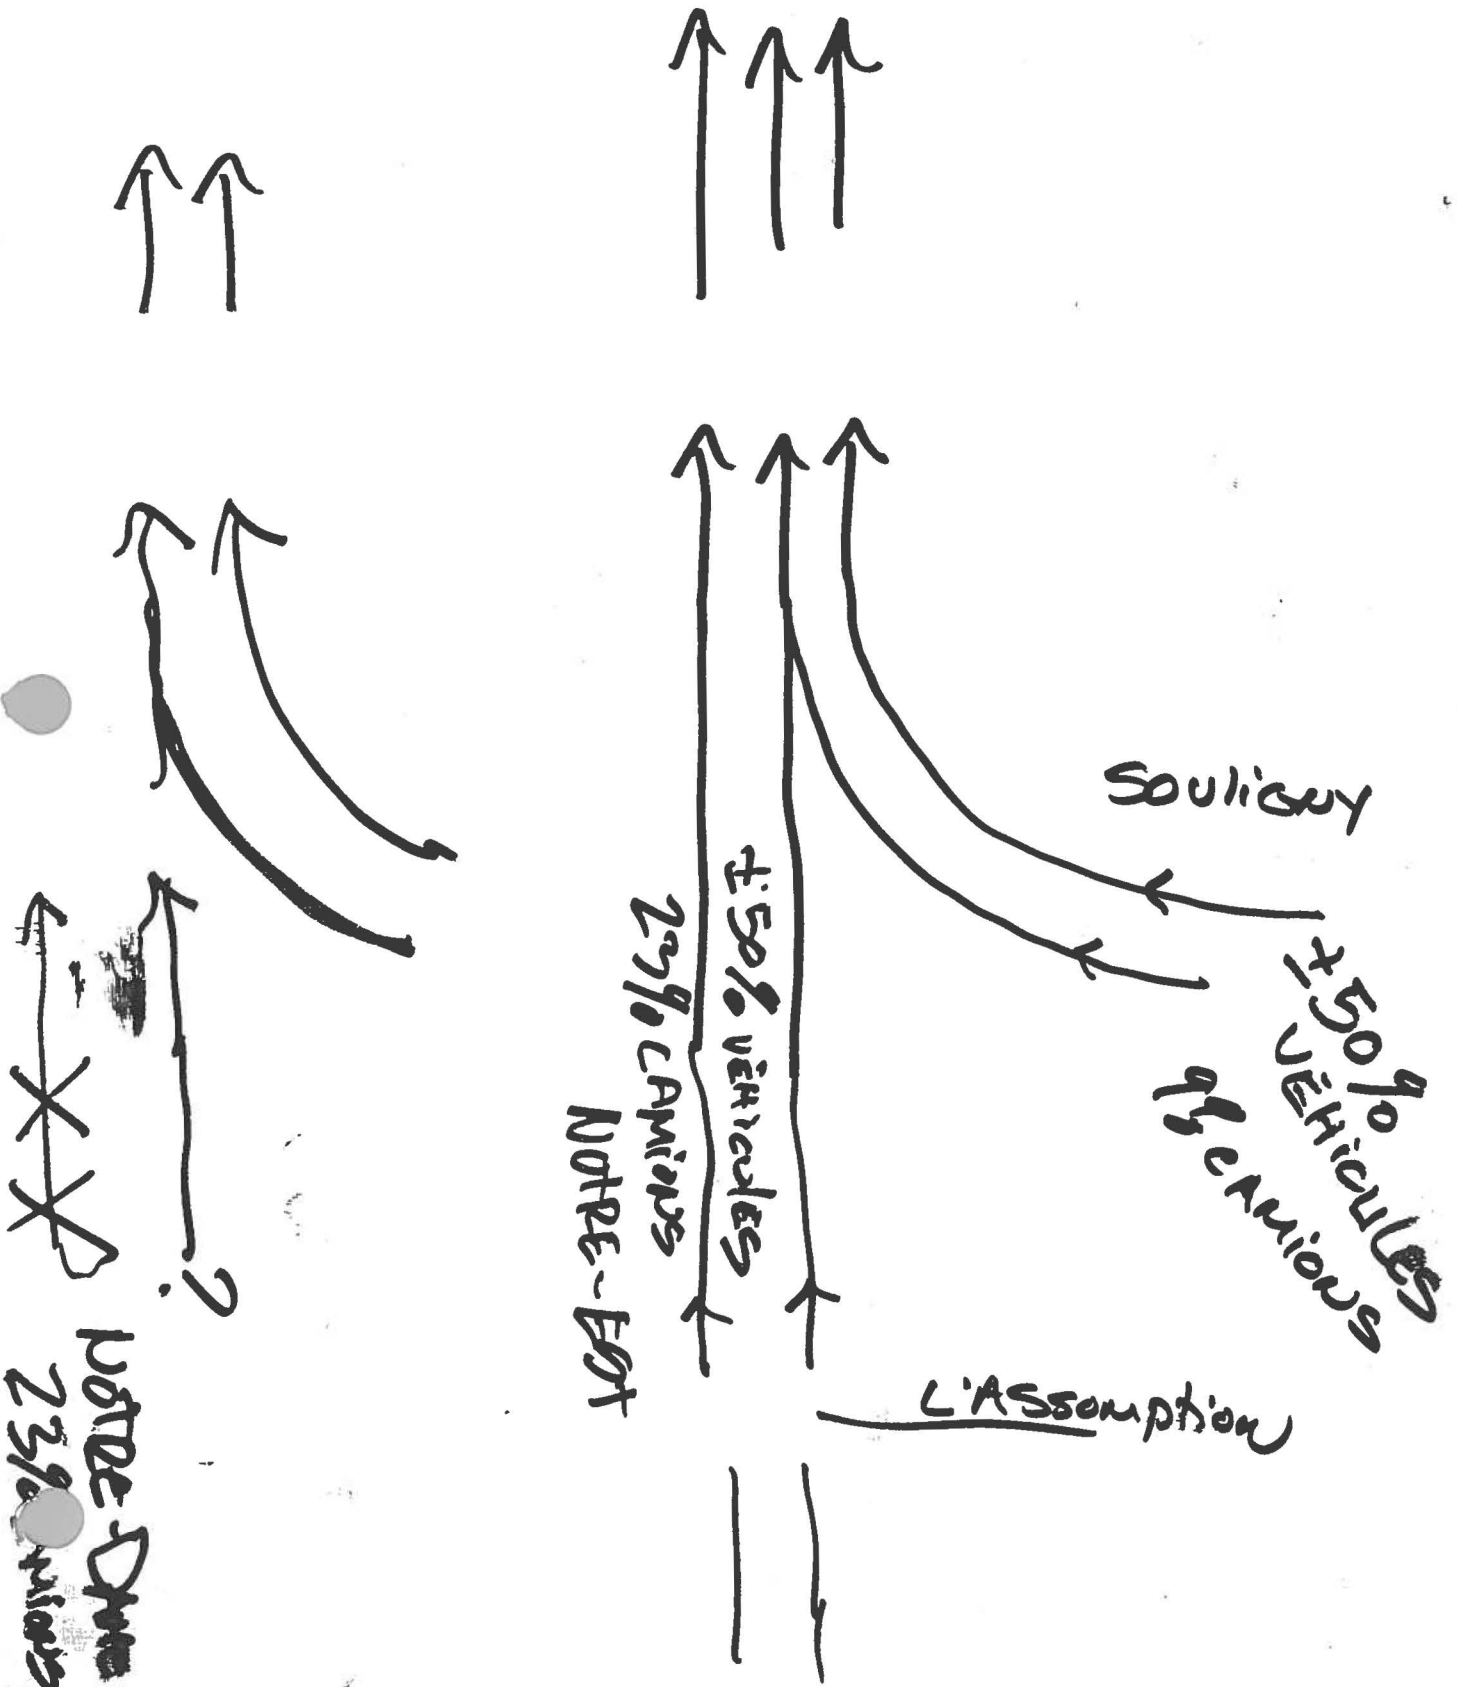 SOULIGNY
±50%
VÉHICULES
9% CAMIONS
±50% VÉHICULES
23% CAMIONS
NOTRE-EST
L'ASSOMPTION
?
NOTRE-DAME
23%